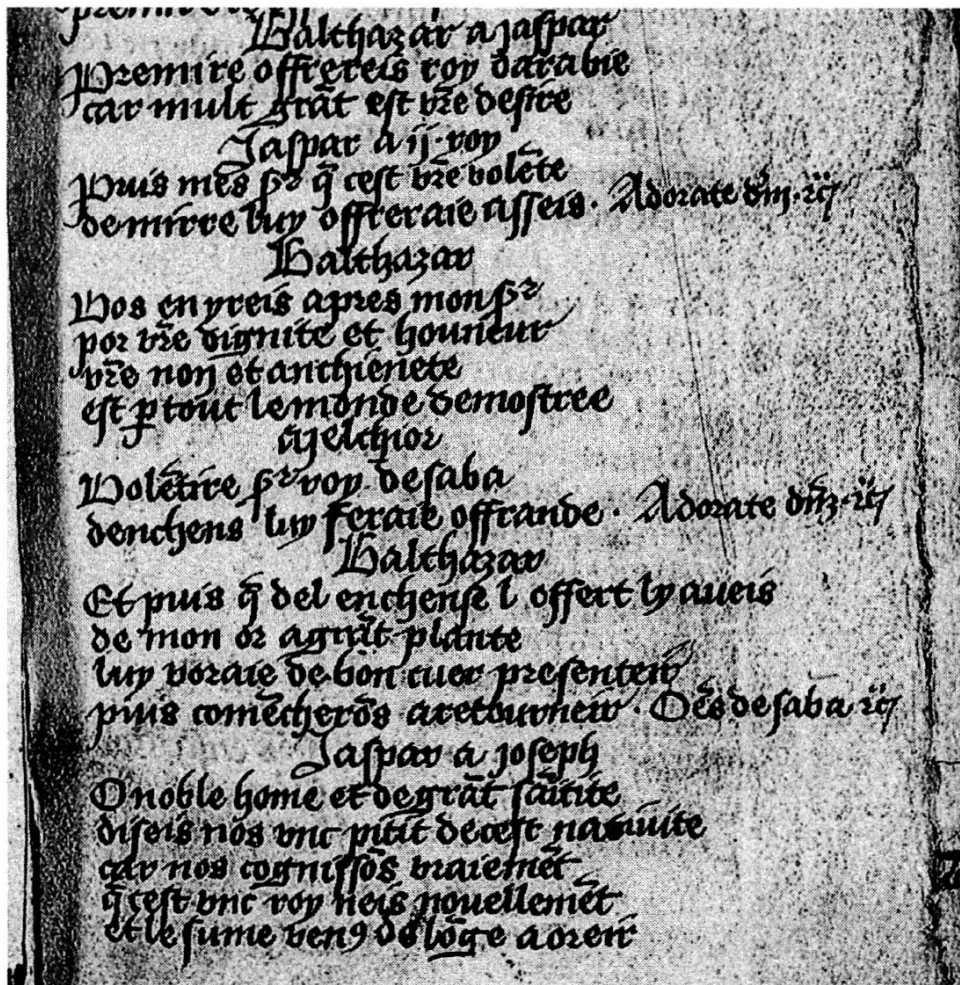 Balthazar a jaspar
Premire offrereis roy darabie
car mult grāt est vr̄e desire
Jaspar a ij · roy
Puis mes sr q̄ cest vr̄e volēte
de mirre luy offreraie asseis · Adorate dm̄ · ꝛc
Balthazar
Vos en yreis apres mon sr
por vr̄e dignite et houneur
vr̄e non et anchienete
est ꝑ tout le monde demostree
Melchior
Volētire sr roy de saba
denchens luy feraie offrande · Adorate dm̄ · ꝛc
Balthazar
Et puis q̄ del enchense l offert ly aueis
de mon or a grāt plante
luy voraie de bon cuer presenteir
puis comēcherōs a retourneir · Oēs de saba ꝛc
Jaspar a joseph
O noble home et de grāt sāitite
diseis nōs vnc pitit de cest natiuite
car nos cognissōs vraiemēt
q̄ cest vnc roy neis nouellemēt
et le sume venꝰ de lōge aoreir